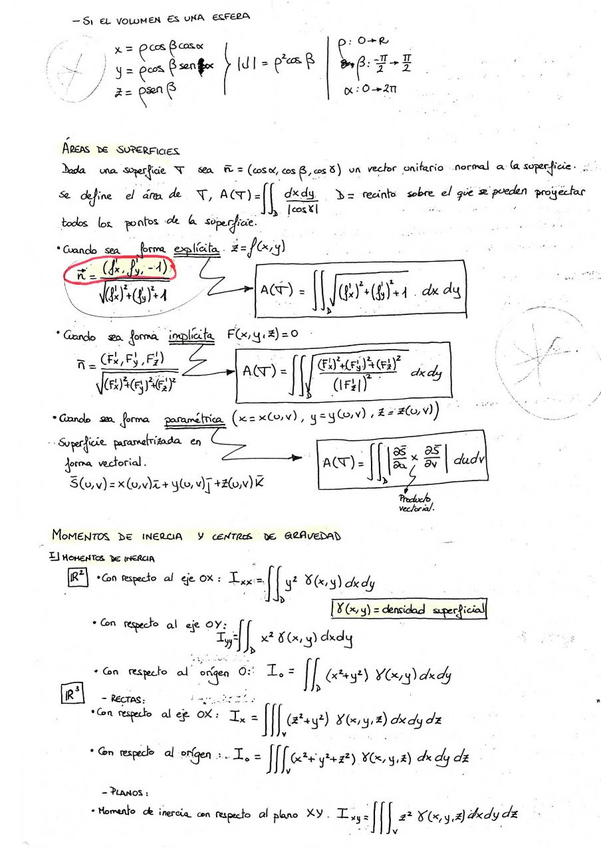 - SI EL VOLUMEN ES UNA ESFERA
x = ρcos β cos α
y = ρcos β sen α
z = ρsen β
|J| = ρ² cos β
ρ: 0→R
β: -π/2 → π/2
α: 0→2π
ÁREAS DE SUPERFICIES
Dada una superficie T sea n̄ = (cos α, cos β, cos γ) un vector unitario normal a la superficie.
se define el área de T, A(T) = ∬_D dxdy / |cos γ| D = recinto sobre el que se pueden proyectar
todos los puntos de la superficie.
• Cuando sea forma explícita z = f(x,y)
n̄ = (f'x, f'y, -1) / √((f'x)²+(f'y)²+1)
A(T) = ∬_D √((f'x)²+(f'y)²+1) · dx dy
• Cuando sea forma implícita F(x,y,z)=0
n̄ = (F'x, F'y, F'z) / √((F'x)²+(F'y)²+(F'z)²
A(T) = ∬_D √((F'x)²+(F'y)²+(F'z)² / (|F'z|)²) dxdy
• Cuando sea forma paramétrica (x=x(u,v), y=y(u,v), z=z(u,v))
Superficie parametrizada en
forma vectorial.
S̄(u,v) = x(u,v)ī + y(u,v)j̄ + z(u,v)k̄
A(T) = ∬_D |∂S̄/∂u × ∂S̄/∂v| dudv
Producto
vectorial.
MOMENTOS DE INERCIA Y CENTROS DE GRAVEDAD
I] MOMENTOS DE INERCIA
ℝ² • Con respecto al eje OX: Ixx = ∬_D y² γ(x,y) dxdy
γ(x,y) = densidad superficial
• Con respecto al eje OY: Iyy = ∬_D x² γ(x,y) dxdy
• Con respecto al origen O: I₀ = ∬_D (x²+y²) γ(x,y) dxdy
ℝ³ - RECTAS:
• Con respecto al eje OX: Ix = ∭_V (z²+y²) γ(x,y,z) dx dy dz
• Con respecto al origen: I₀ = ∭_V (x²+y²+z²) γ(x,y,z) dx dy dz
- PLANOS:
• Momento de inercia con respecto al plano XY. Ixy = ∭_V z² γ(x,y,z) dxdydz